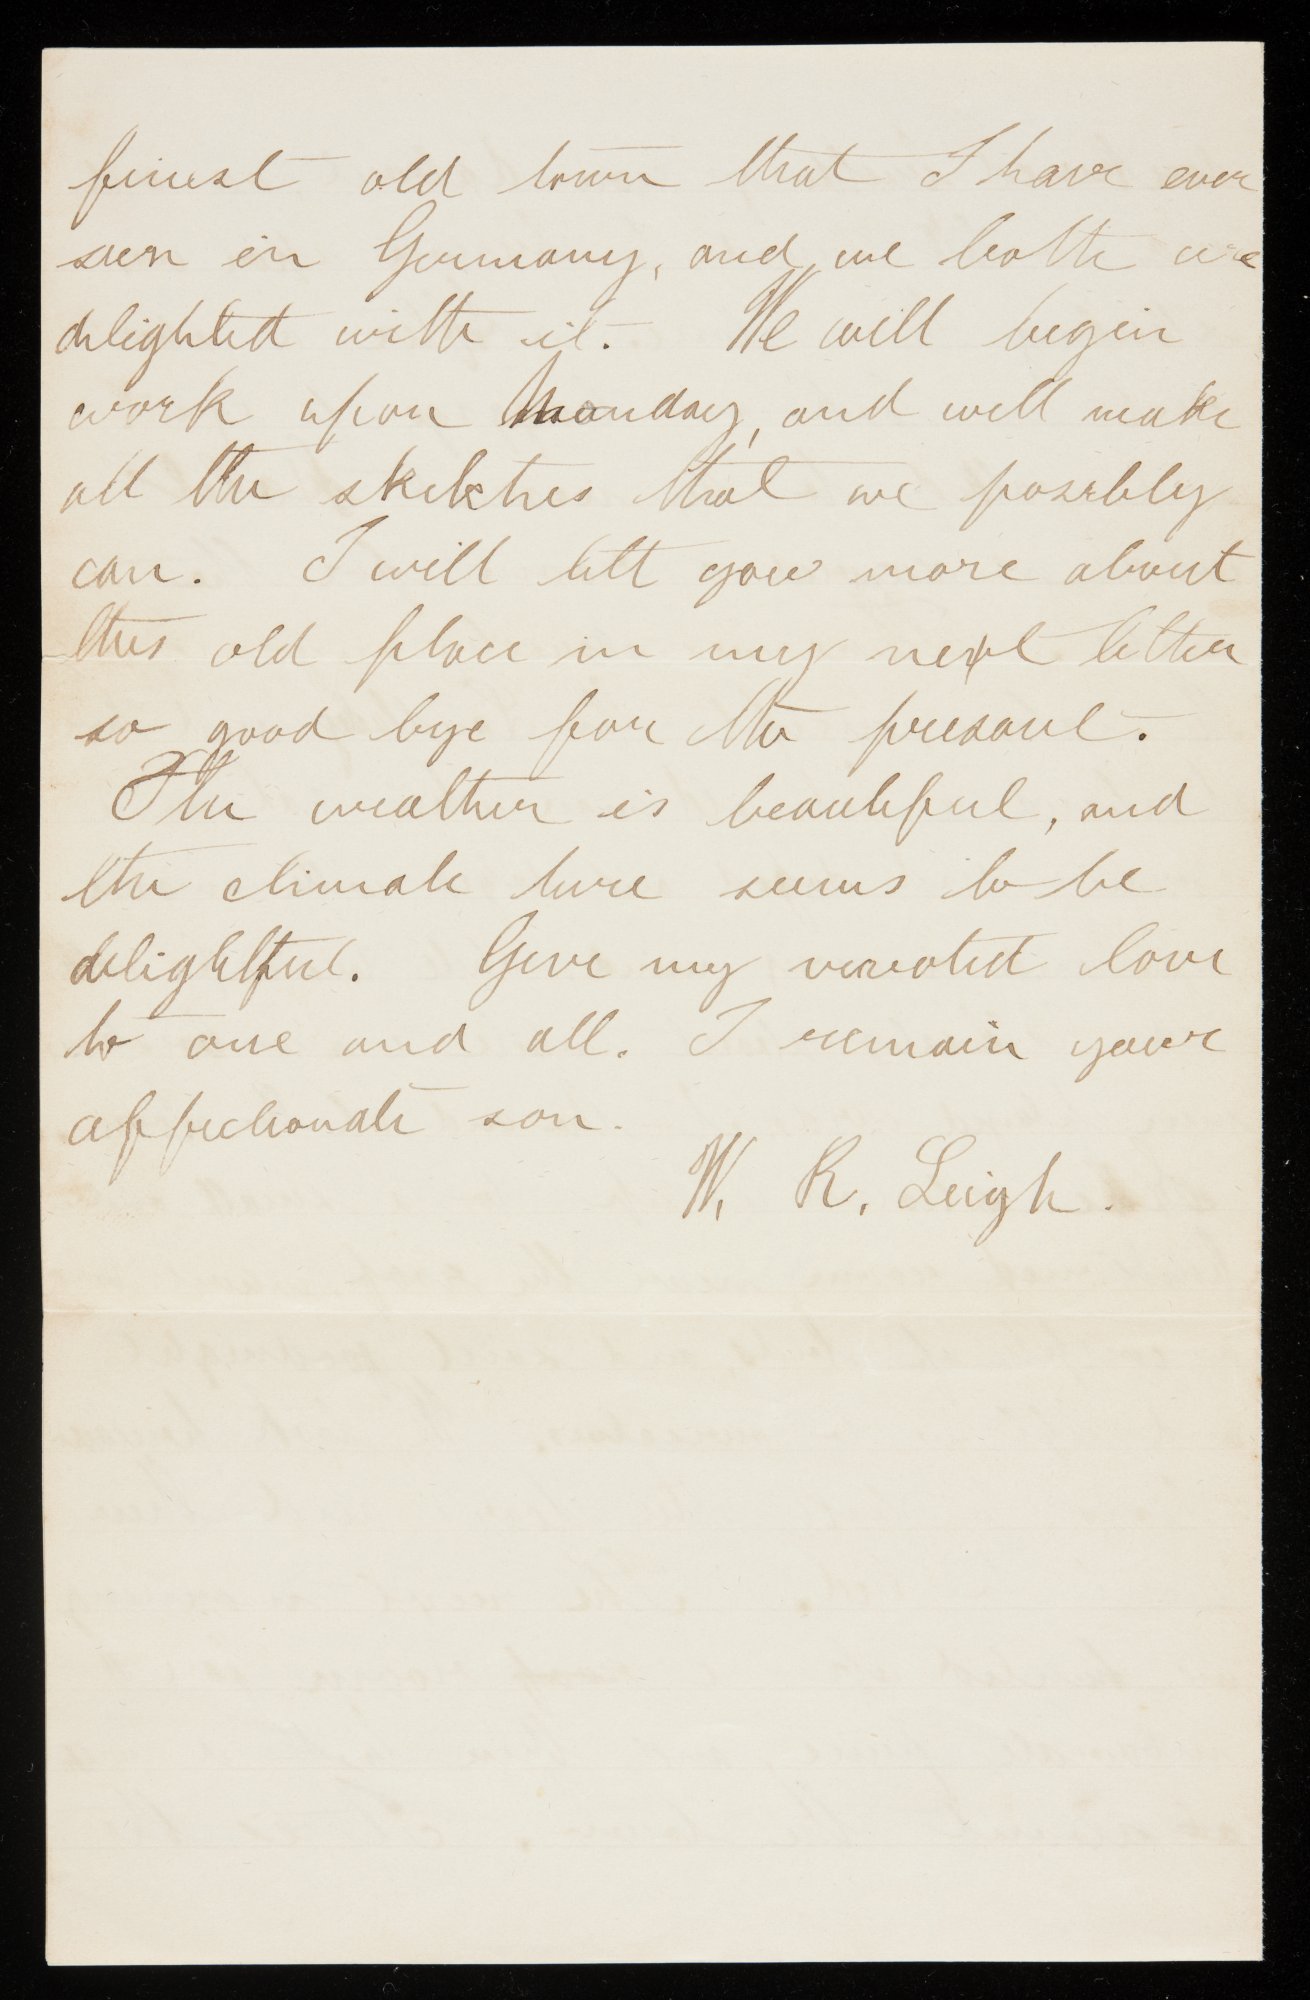 finest old town that I have ever
seen in Germany, and we both are
delighted with it. We will begin
work upon Monday, and will make
all the sketches that we possibly
can. I will tell you more about
this old place in my next letter
so good bye for the present.
The weather is beautiful, and
the climate here seems to be
delightful. Give my devoted love
to one and all. I remain your
affectionate son.
W. R. Leigh.